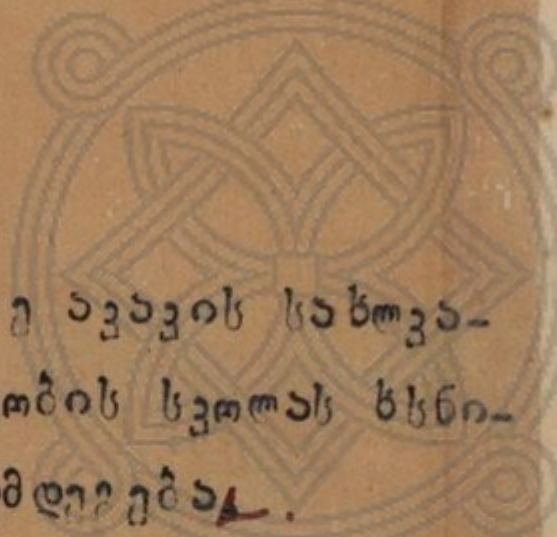 ე აკაკის სახლკა-
ობის სკოლას ხსნი-
მდეგება.